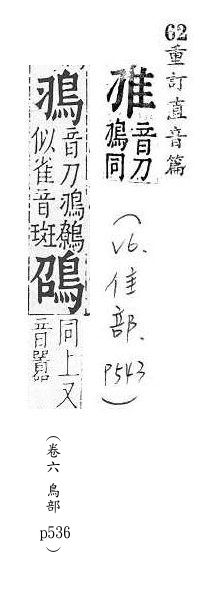 62 重訂直音篇
音刀
鳭同
(V6. 隹部. P543)
鳭
音刀鳭鷯
似雀音斑
同上又
音嚻
(卷六 鳥部 p536)